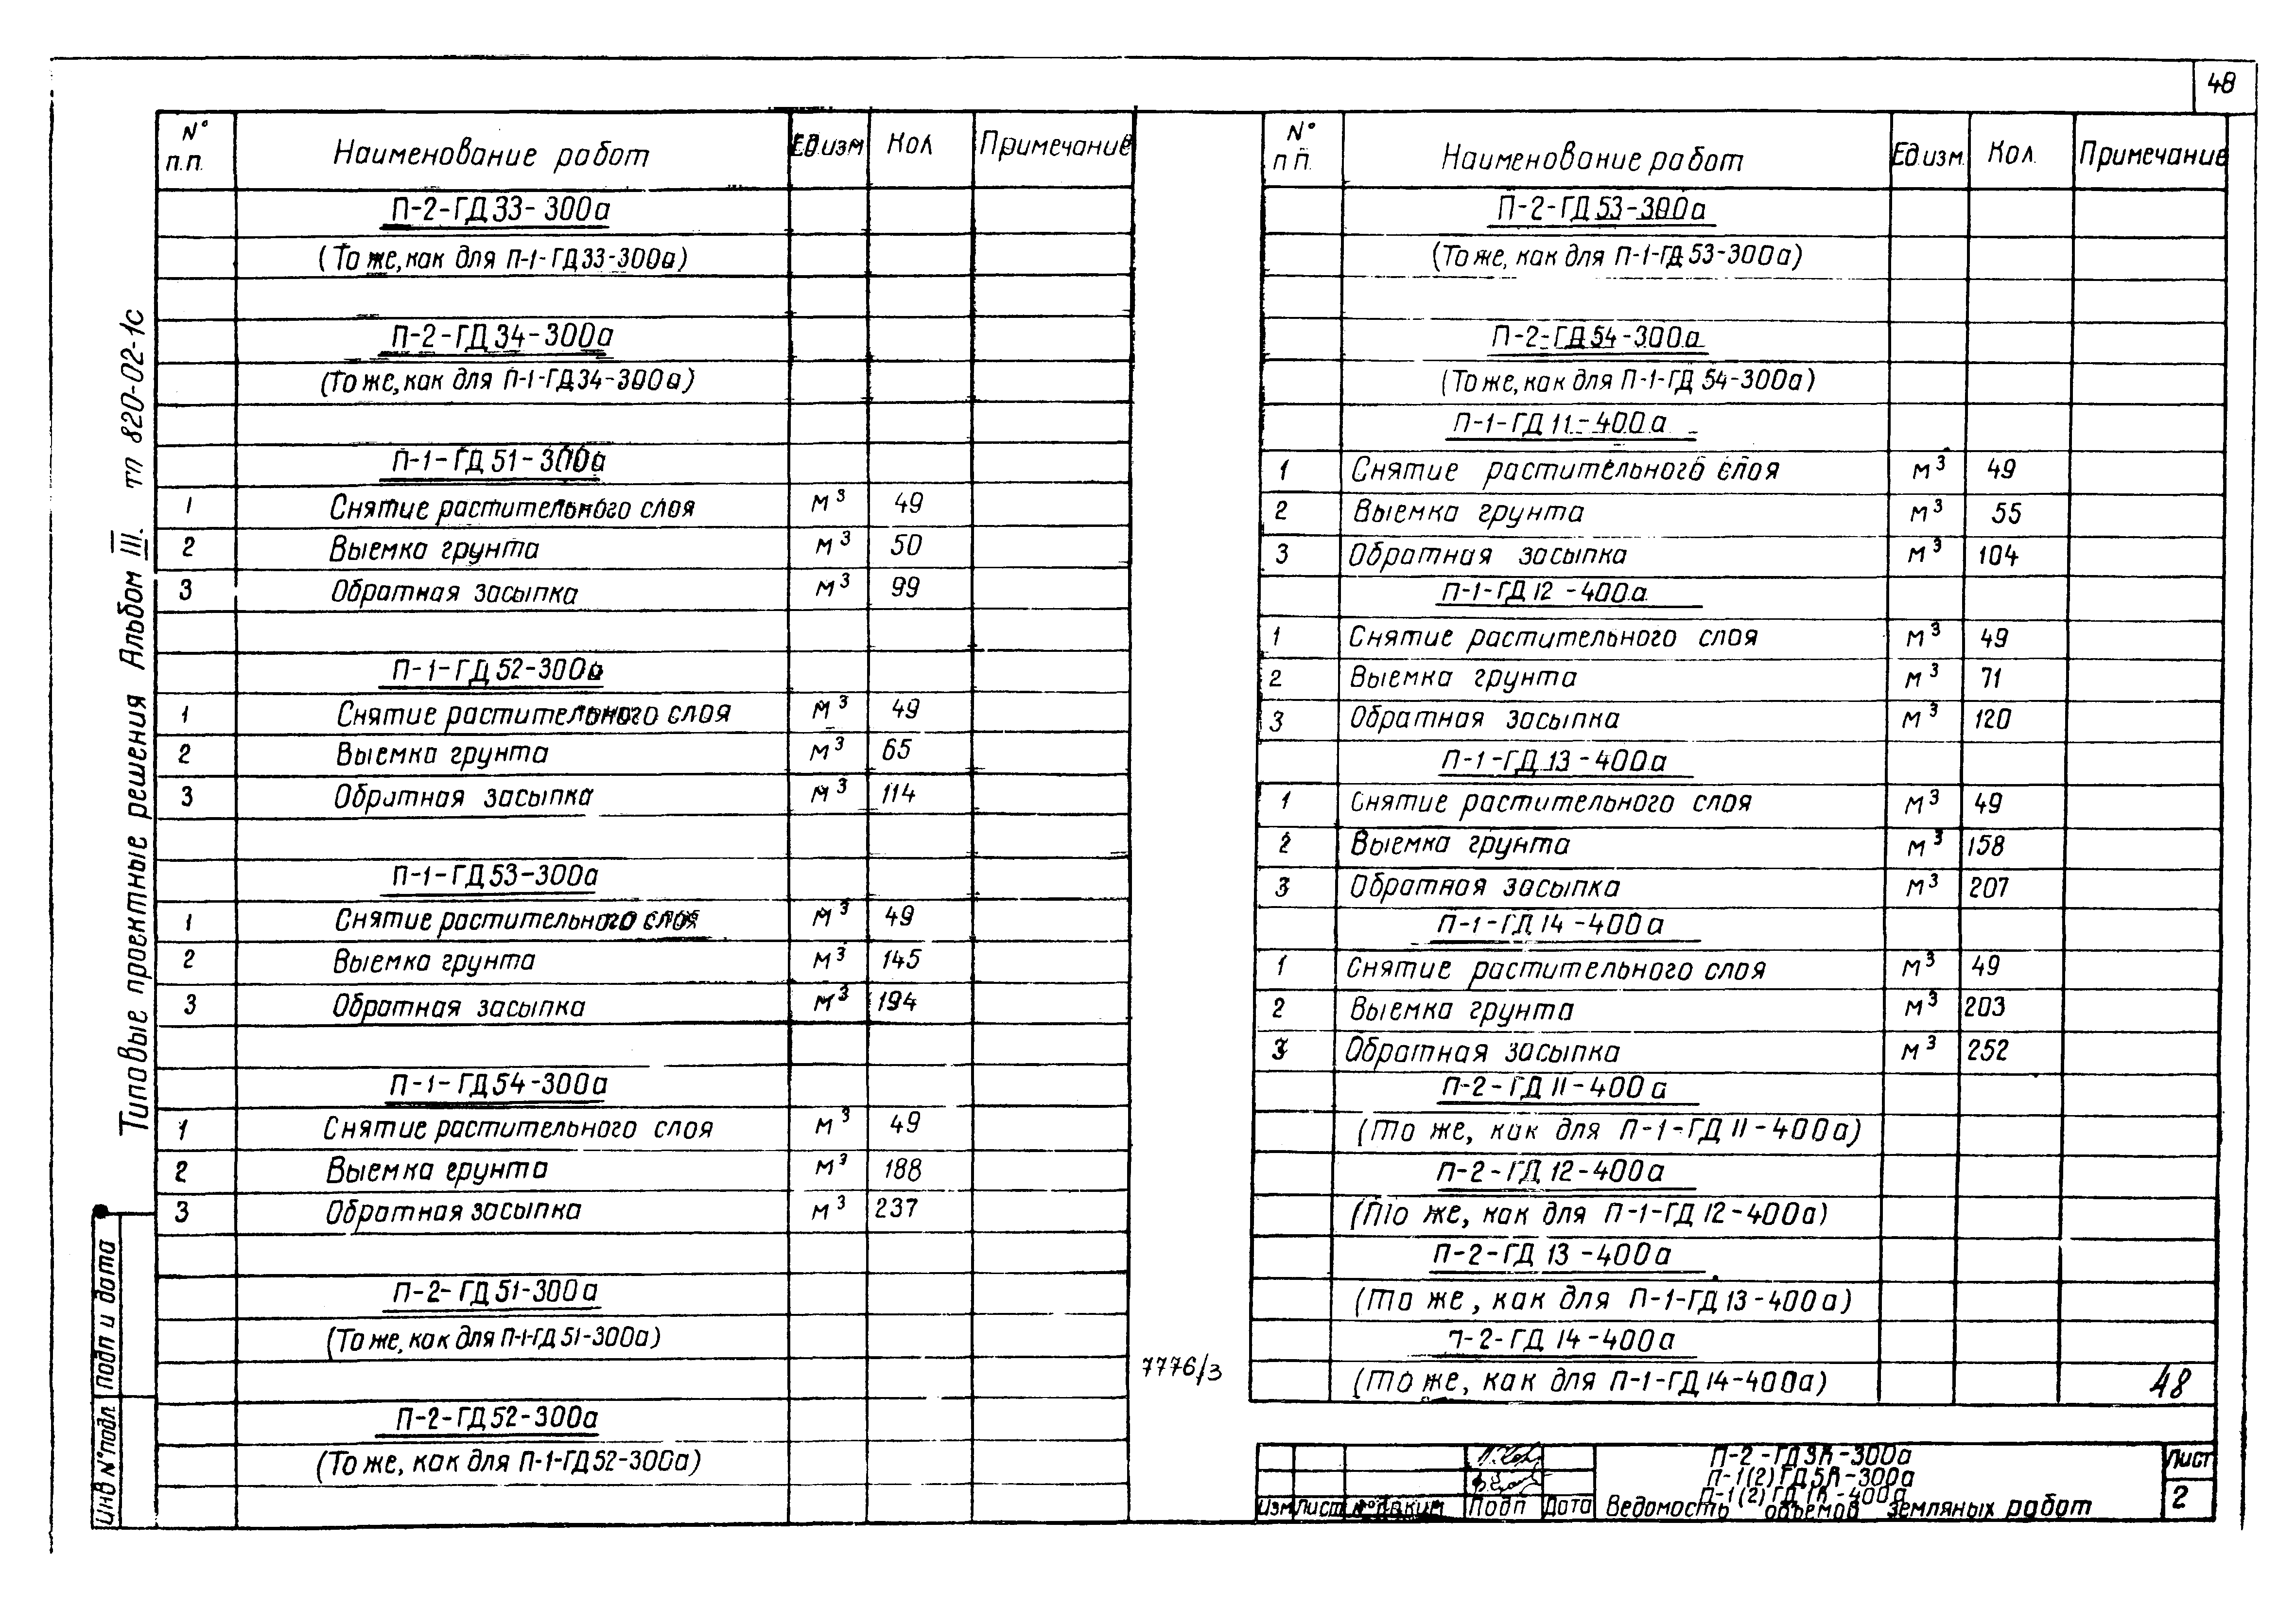 48
Типовые проектные решения Альбом III. тп 820-02-1с
Инв N°подл. Подп и дата
N° п.п. Наименование работ Ед.изм Кол Примечание
П-2-ГД33-300а
(То же, как для П-1-ГД33-300а)
П-2-ГД34-300а
(То же, как для П-1-ГД34-300а)
П-1-ГД51-300а
1 Снятие растительного слоя м³ 49
2 Выемка грунта м³ 50
3 Обратная засыпка м³ 99
П-1-ГД52-300а
1 Снятие растительного слоя м³ 49
2 Выемка грунта м³ 65
3 Обратная засыпка м³ 114
П-1-ГД53-300а
1 Снятие растительного слоя м³ 49
2 Выемка грунта м³ 145
3 Обратная засыпка м³ 194
П-1-ГД54-300а
1 Снятие растительного слоя м³ 49
2 Выемка грунта м³ 188
3 Обратная засыпка м³ 237
П-2-ГД51-300а
(То же, как для П-1-ГД51-300а)
П-2-ГД52-300а
(То же, как для П-1-ГД52-300а)
7776/3
N° п.п. Наименование работ Ед.изм. Кол. Примечание
П-2-ГД53-300а
(То же, как для П-1-ГД53-300а)
П-2-ГД54-300а
(То же, как для П-1-ГД54-300а)
П-1-ГД11-400а
1 Снятие растительного слоя м³ 49
2 Выемка грунта м³ 55
3 Обратная засыпка м³ 104
П-1-ГД12-400а
1 Снятие растительного слоя м³ 49
2 Выемка грунта м³ 71
3 Обратная засыпка м³ 120
П-1-ГД13-400а
1 Снятие растительного слоя м³ 49
2 Выемка грунта м³ 158
3 Обратная засыпка м³ 207
П-1-ГД14-400а
1 Снятие растительного слоя м³ 49
2 Выемка грунта м³ 203
3 Обратная засыпка м³ 252
П-2-ГД11-400а
(То же, как для П-1-ГД11-400а)
П-2-ГД12-400а
(То же, как для П-1-ГД12-400а)
П-2-ГД13-400а
(То же, как для П-1-ГД13-400а)
П-2-ГД14-400а
(То же, как для П-1-ГД14-400а)
48
П-2-ГД3п-300а
П-1(2)ГД5п-300а
П-1(2)ГД1п-400а
Ведомость объемов земляных работ
Изм Лист N°докум Подп Дата
Лист
2